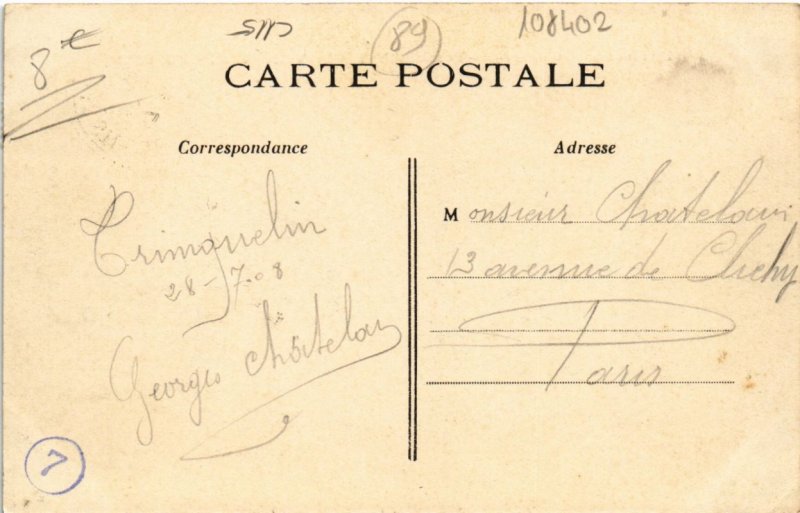 8 €
89
108402
CARTE POSTALE
Correspondance
Adresse
Trinquelin
28-7-08
Georges Châtelain
Monsieur Châtelain
13 avenue de Clichy
Paris
7